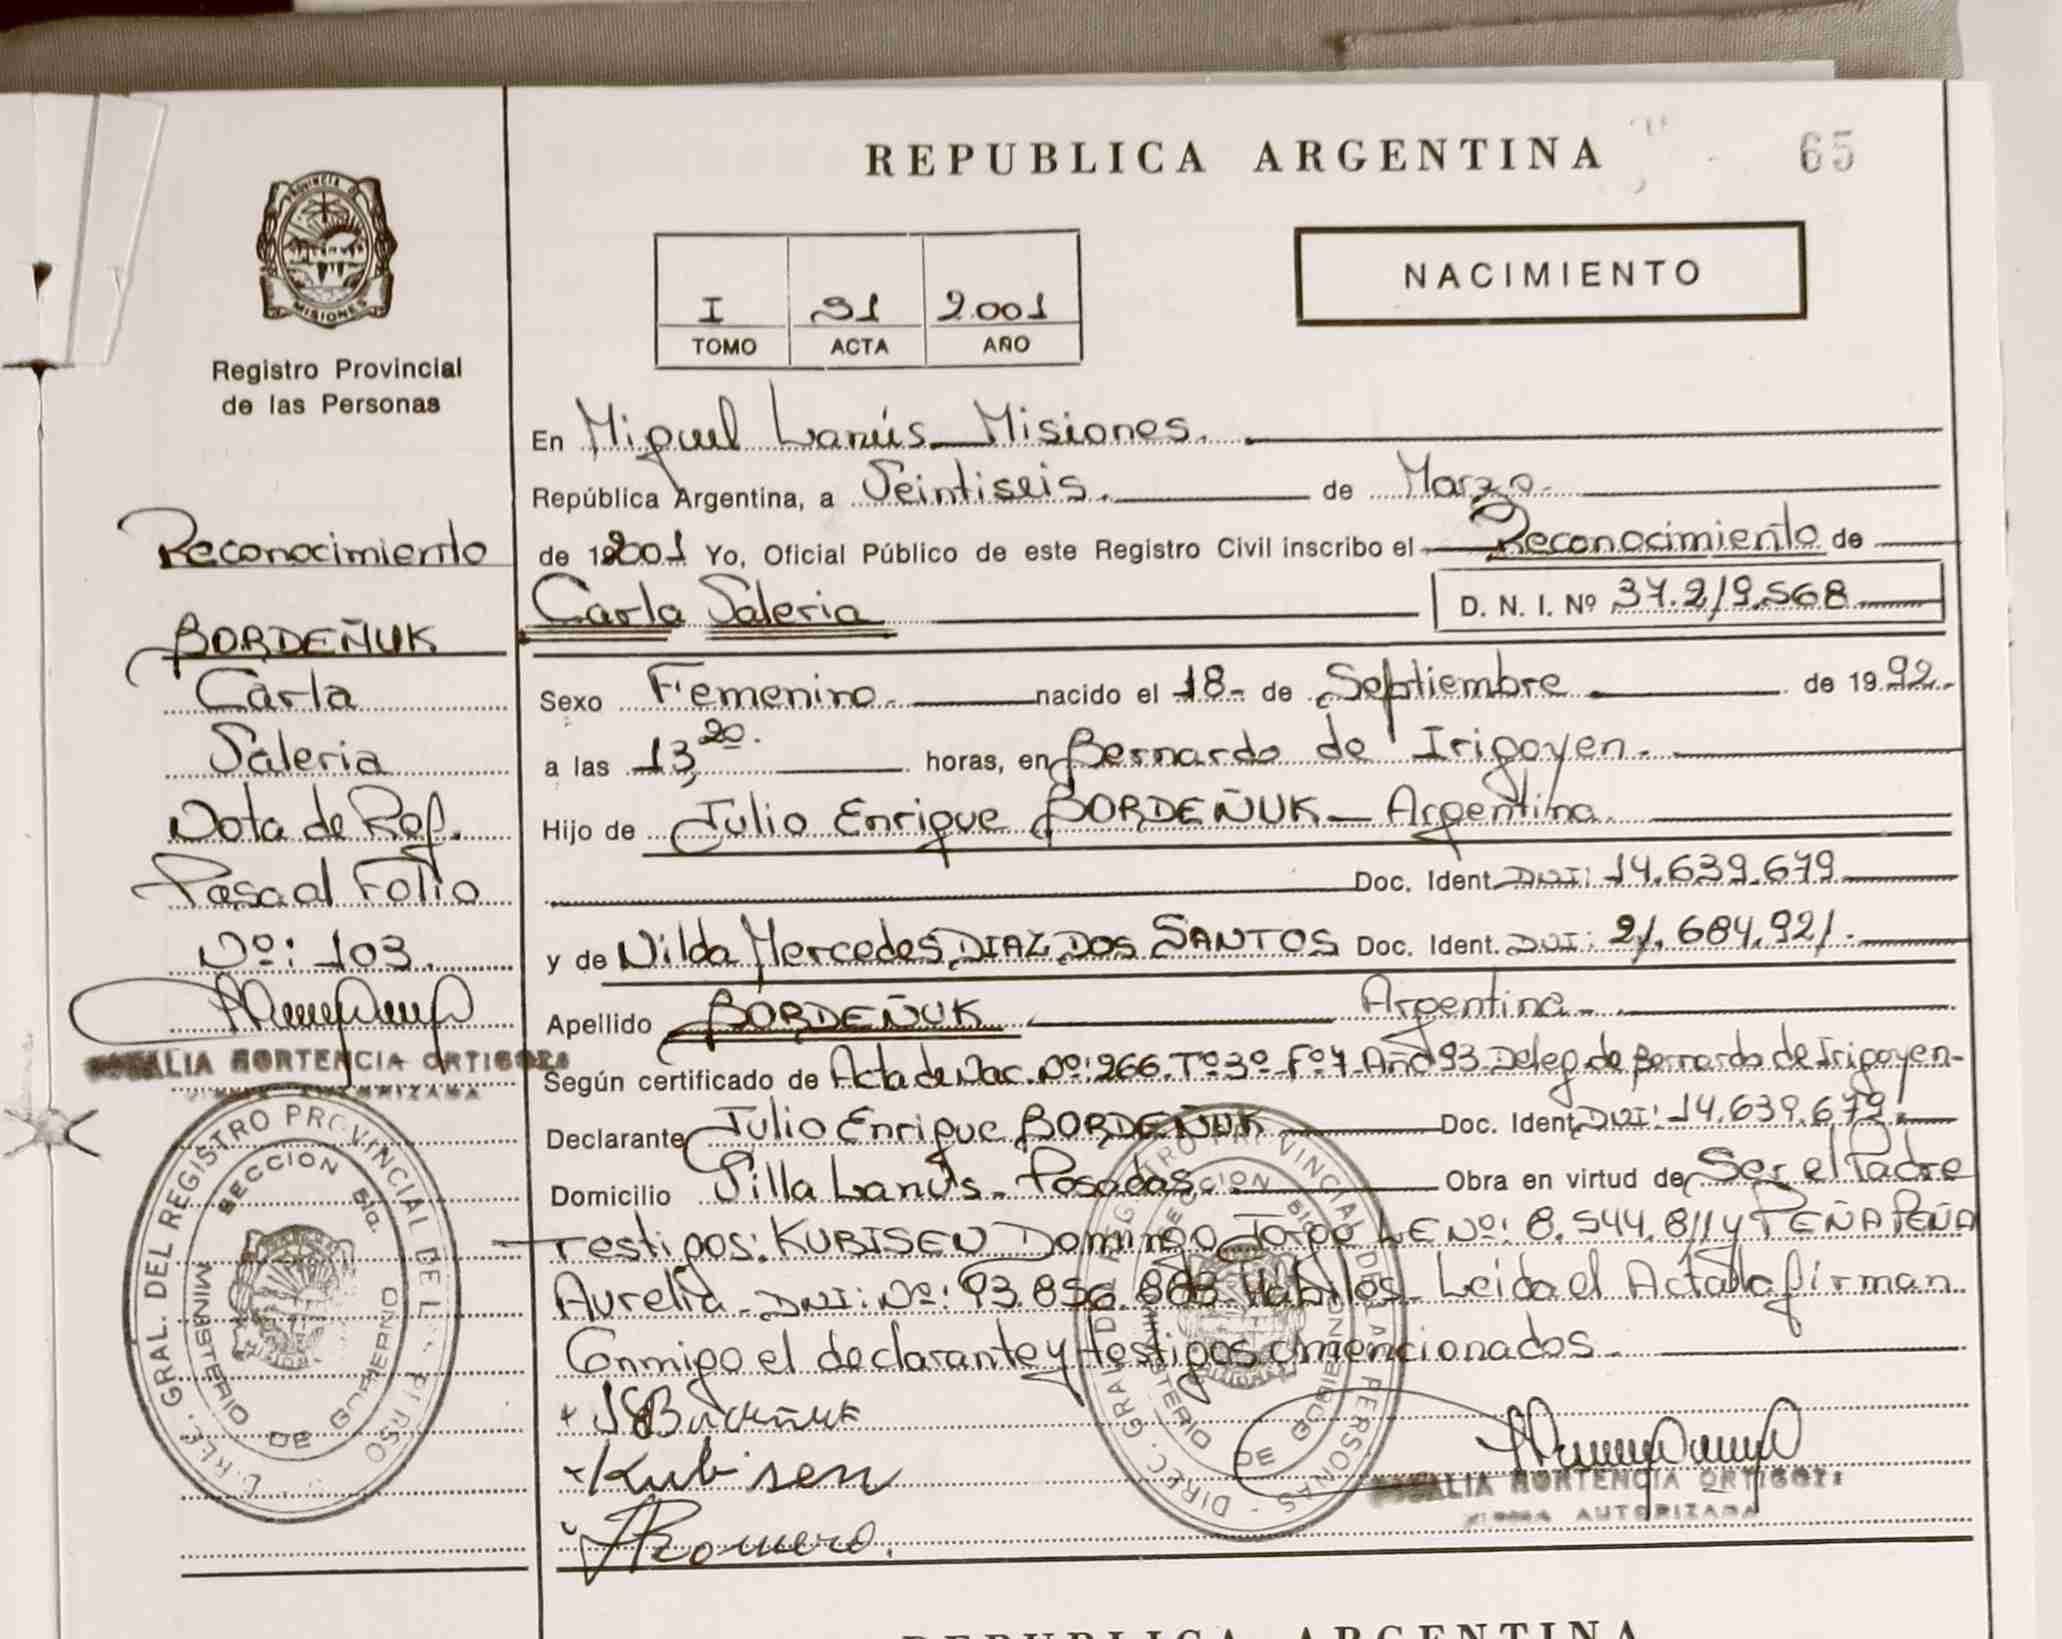 REPUBLICA ARGENTINA
65
PROVINCIA D
MISIONES
Registro Provincial
de las Personas
I 91 2.001
TOMO ACTA AÑO
NACIMIENTO
Reconocimiento
BORDEÑUK
Carla
Valeria
Nota de Ref.
Pasa al Folio
Nº: 103.
HORTENCIA ORTIGOZA
AUTORIZADA
GRAL. DEL REGISTRO PROVINCIAL DE L
SECCION
MINISTERIO DE GOBIERNO
En Miguel Lanús - Misiones.
República Argentina, a Veintiseis. de Marzo.
de 2001 Yo, Oficial Público de este Registro Civil inscribo el Reconocimiento de
Carla Valeria D. N. I. Nº 37.219.568
Sexo Femenino. nacido el 18- de Septiembre de 1992.
a las 13,20. horas, en Bernardo de Irigoyen.
Hijo de Julio Enrique BORDEÑUK - Argentina.
Doc. Ident. DNI: 14.639.679
y de Nilda Mercedes DIAZ DOS SANTOS Doc. Ident. DNI: 21.684.921.
Apellido BORDEÑUK Argentina.
Según certificado de Acta de Nac. Nº: 266. Tº 3º- Fº 7- Año 93- Deleg. de Bernardo de Irigoyen-
Declarante Julio Enrique BORDEÑUK Doc. Ident. DNI: 14.639.679.
Domicilio Villa Lanús - Posadas. Obra en virtud de Ser el Padre
Testigos: KUBISEN Domingo Jorge LE Nº: 8.544.811 y PEÑA PEÑA
Aurelia - DNI: Nº: 93.856.883 Habiles - Leida el Acta la firman
Conmigo el declarante y testigos mencionados.
Kubisen
Romero.
HORTENCIA ORTIGOZA
AUTORIZADA
REPUBLICA ARGENTINA